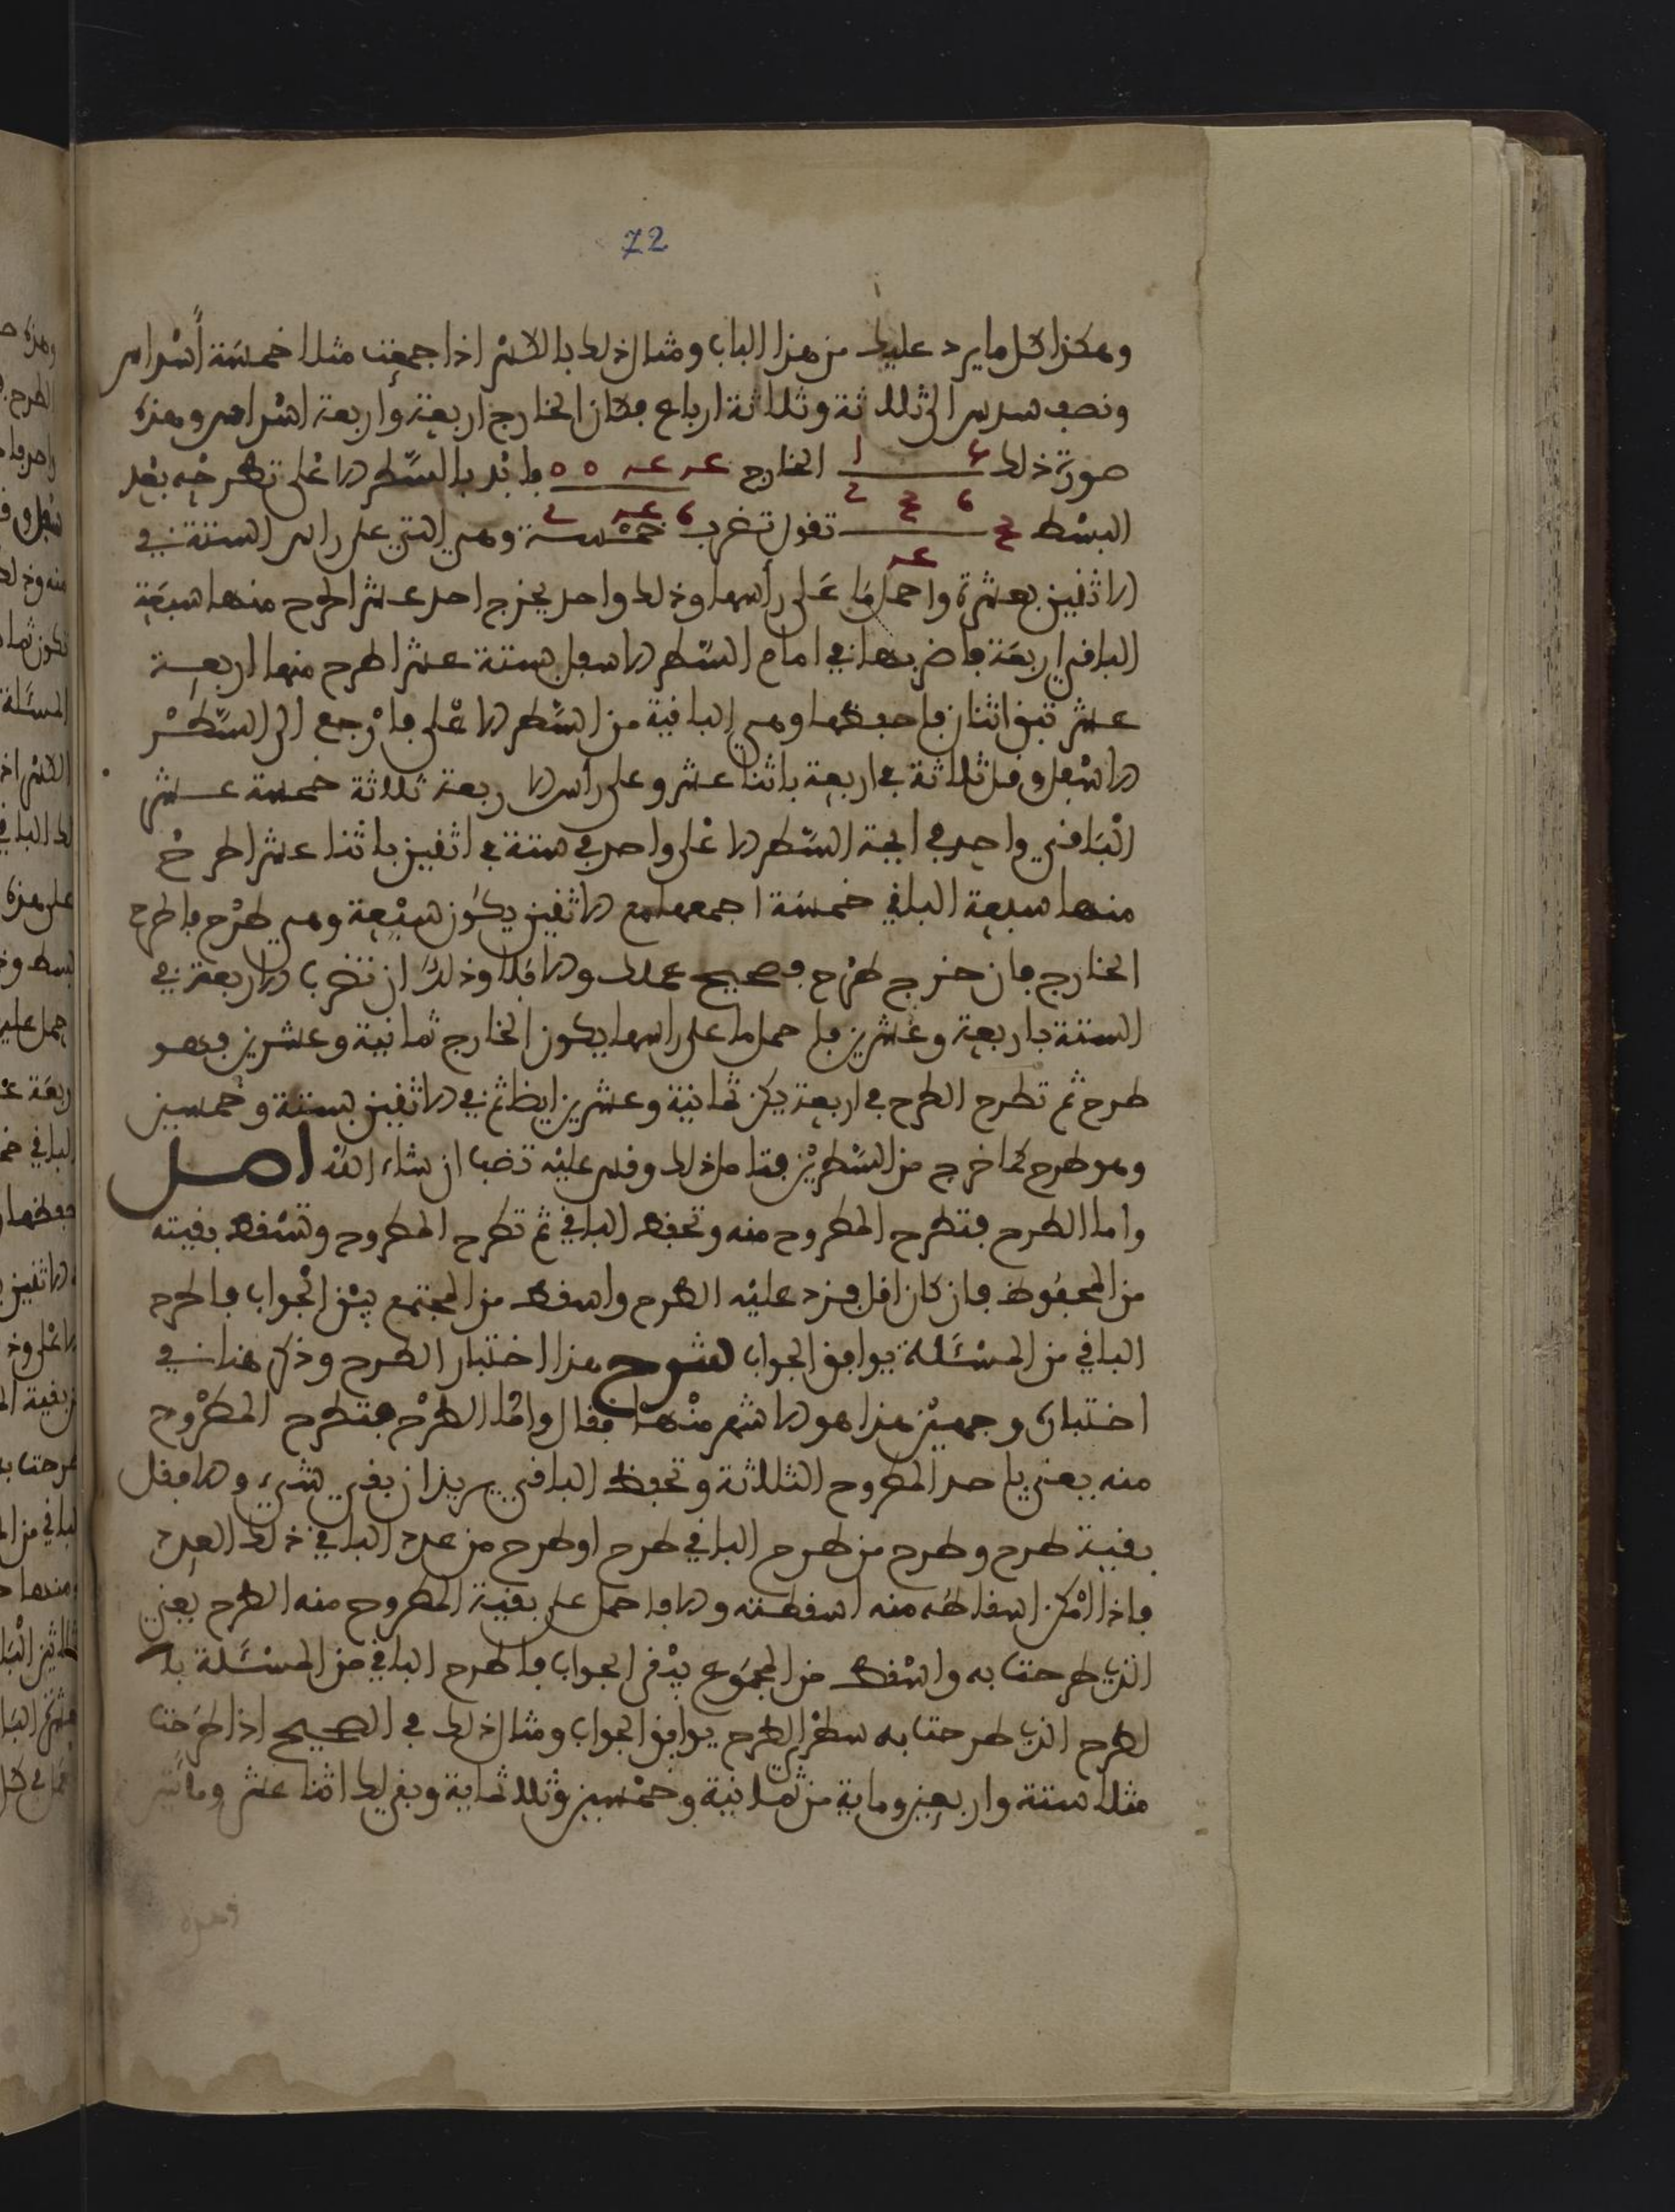 72
وهكذا كل ما يرد عليك من هذا الباب ومثال ذلك بالكسر اذا جمعت مثلا خمسة أسداس
ونصف سدس الى ثلاثة وثلاثة ارباع فكان الخارج اربعة وأربعة اسداس وهذه
صورة ذلك الخارج فابد بالسطر الاعلى تطرحه بعد
البسط تقول تضرب خمسة وهي التي على راس الستة في
الاثنين بعشرة واحمل ما على رأسها وذلك واحد يخرج احد عشر اطرح منها سبعة
الباقي اربعة فاضربها في امام السطر الاسفل بستة عشر اطرح منها اربعة
عشر تبق اثنان فاحفظها وهي الباقية من السطر الاعلى فارجع الى السطر
الاسفل وقل ثلاثة في اربعة باثنا عشر وعلى رأس الاربعة ثلاثة خمسة عشر
الباقي واحد في ايمة السطر الاعلى واحد في ستة في اثنين باثنا عشر اطرح
منها سبعة الباقي خمسة اجمعها مع الاثنين يكون سبعة وهي طرح فاطرح
الخارج فان خرج طرح فصحيح عملك والا فلا وذلك ان تضرب الاربعة في
الستة باربعة وعشرين فاحمل ما على راسها يكون الخارج ثمانية وعشرين فهو
طرح ثم تطرح الطرح في اربعة يكن ثمانية وعشرين ايضا ثم في الاثنين بستة وخمسين
وهو طرح كما خرج من السطرين فتامل ذلك وقس عليه تصب ان شاء الله اصل
واما الطرح فتطرح المطروح منه وتحفظ الباقي ثم تطرح المطروح وتسقط بقيته
من المحفوظ فان كان اقل فزد عليه الطرح واسقط من المجتمع يبق الجواب فاطرح
الباقي من المسئلة يوافق الجواب شرح هذا اختبار الطرح وذكر هنا في
اختباره وجهين هذا هو الاشهر منها فقال واما الطرح فتطرح المطروح
منه يعني باحد المطروح الثلاثة وتحفظ الباقي يريد ان بقي شيء والا فقل
بقية طرح وطرح من طرح الباقي طرح اوطرح من عدد الباقي ذلك العدد
فاذا امكن اسقاطه منه اسقطته والا فاحمل على بقية المطروح منه الطرح يعني
الذي طرحت به واسقط من المجموع يبقى الجواب فاطرح الباقي من المسئلة با
لطرح الذي طرحت به سطر الطرح يوافق الجواب ومثال ذلك في الصحيح اذا طرحت
مثلا ستة واربعين وماية من ثمانية وخمسين وثلاثماية وبقي لك اثنا عشر ومائتي
وهذه